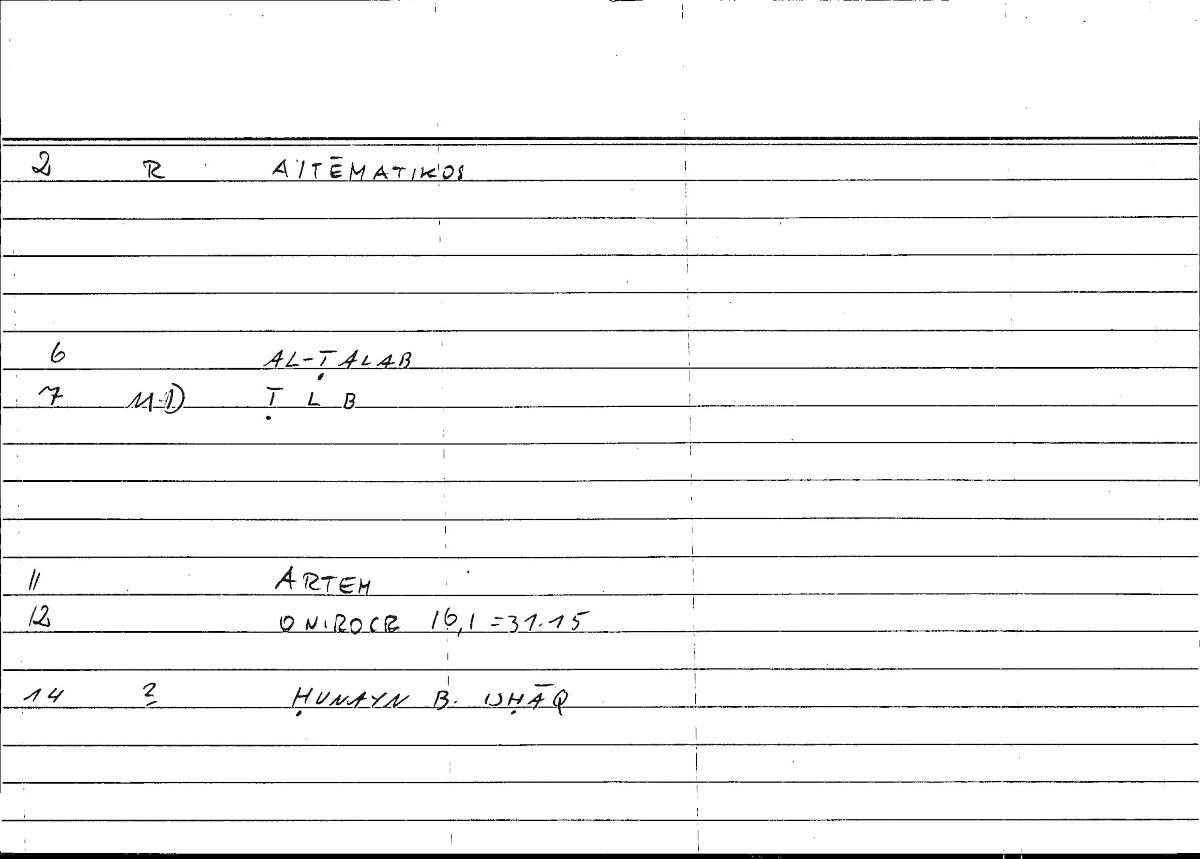 2 R AITĒMATIKOS
6 AL-ṬALAB
7 M-D Ṭ L B
11 ARTEM
12 ONIROCR 16,1 =31.15
14 2 ḤUNAYN B. ISḤĀQ